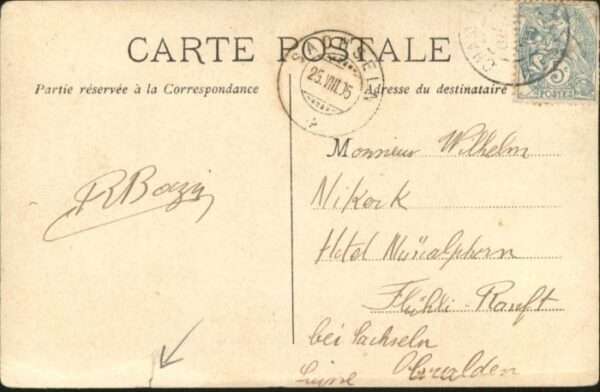 CARTE POSTALE
SACHSELN
23.VIII.05
Partie réservée à la Correspondance
Adresse du destinataire
5c
POSTES
R Bazin
Monsieur Wilhelm
Nikork
Hotel Nünalphorn
Flühli-Ranft
bei Sachseln
Suisse Obwalden